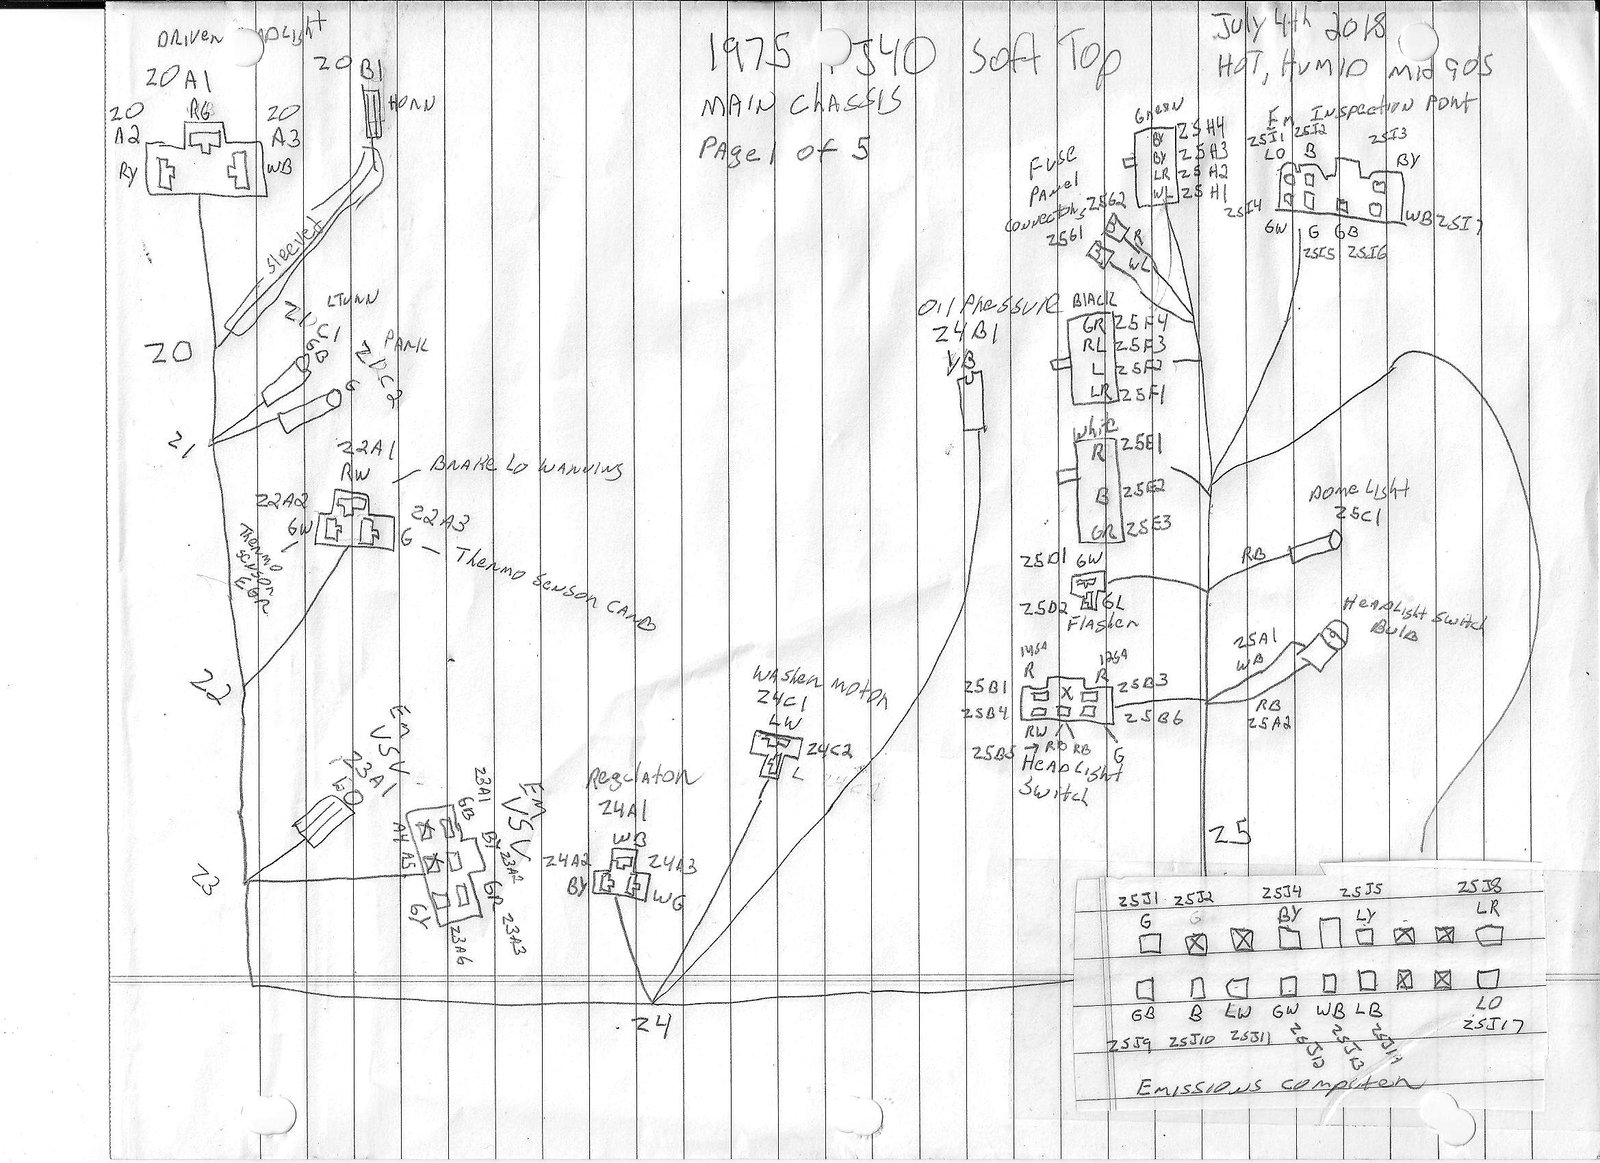 1975 FJ40 Soft Top
MAIN CHASSIS
Page 1 of 5
July 4th 2018
HOT, HUMID MID 90S
DRIVER
20A1
RG
20
A2
RY
20
A3
WB
20 B1
HORN
Sleeved
20
LTURN
GB
PARK
G
21
22A1
RW
BRAKE LO WARNING
22A2
GW
22A3
G
THERMO SENSOR CARB
THERMO
SENSOR
EGR
22
EM
VSV
23A1
LO
23
23A1
GB
EM
VSV
BY
23A2
GR
23A3
A4 A5
GY
23A6
Regulator
24A1
WB
24A2
BY
24A3
WG
24
WASHER MOTOR
24C1
LW
24C2
L
OIL PRESSURE
24B1
YB
Fuse
Panel
Connectors
25G2
B R
25G1
B WL
GREEN
BY 25H4
BY 25H3
LR 25H2
WL 25H1
Em INSPECTION PORT
25I1 25I2 25I3
LO B BY
25I4
GW G GB
WB 25I7
25I5 25I6
BLACK
GR 25F4
RL 25F3
L 25F2
LR 25F1
White
R 25E1
B 25E2
GR 25E3
25D1 GW
25D2 GL
Flasher
DOME LIGHT
25C1
RB
HEADLIGHT SWITCH
BULB
25A1
WB
RB
25A2
R R
25B1 X 25B3
25B4 25B6
RW
25B5 → RB RB G
HEADLIGHT
Switch
25
25J1 25J2 25J4 25J5 25J8
G G BY LY LR
GB B LW GW WB LB LO
25J9 25J10 25J11 25J12 25J13 25J14 25J17
EMISSIONS COMPUTER